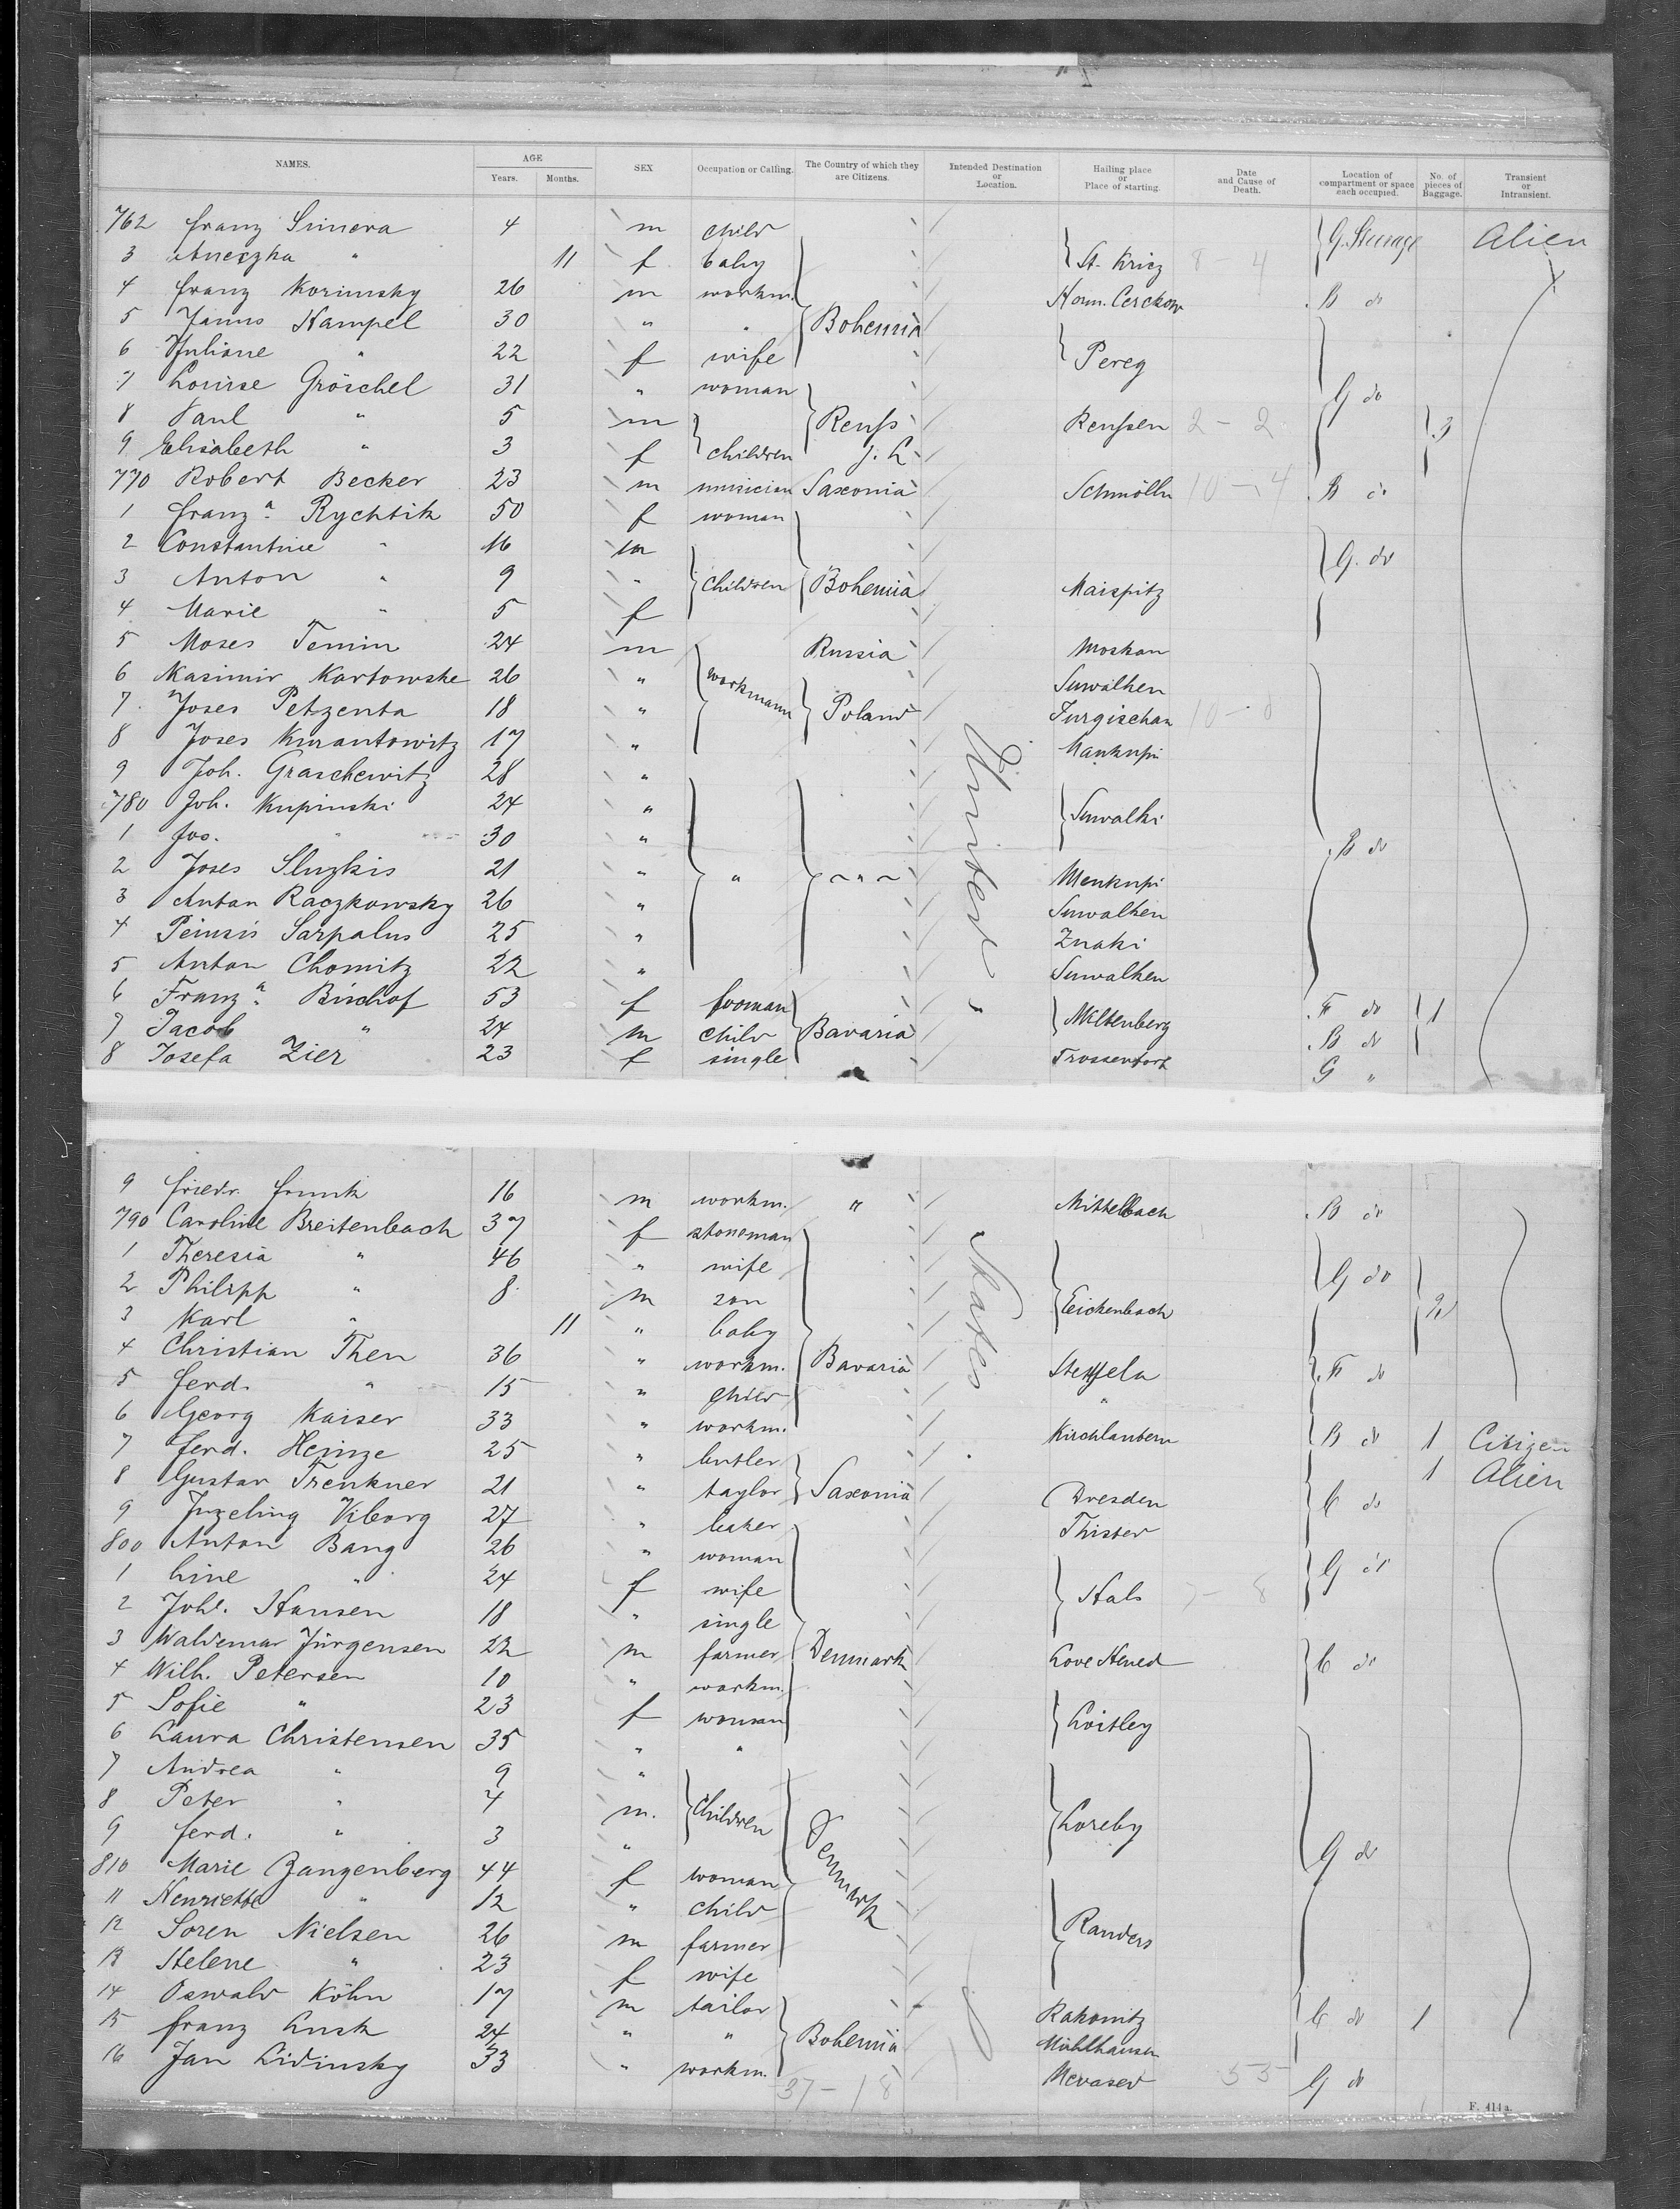 NAMES. AGE Years. Months. SEX Occupation or Calling. The Country of which they are Citizens. Intended Destination or Location. Hailing place or Place of starting. Date and Cause of Death. Location of compartment or space each occupied. No. of pieces of Baggage. Transient or Intransient.
762 Franz Simera 4 m child G. Steerage Alien
3 Aneczka " 11 f baby St. Kriz 8-4
4 Franz Korimsky 26 m workm. Horm. Cerekow B do
5 Janus Hampel 30 " " Bohemia
6 Juliane " 22 f wife Pereg
7 Louise Gröschel 31 " woman G do
8 Paul " 5 m Reuss Reussen 2-2 3
9 Elisabeth " 3 f children j. L.
770 Robert Becker 23 m musician Saxonia Schmölln 10-14 B do
1 Franz.a Rychtik 50 f woman
2 Constantine " 16 m G. do
3 Anton " 9 " children Bohemia Maispitz
4 Marie " 5 f
5 Moses Temin 24 m Russia Moskau
6 Kasimir Kartowske 26 " workmann Suwalken
7 Joses Petzenta 18 " Poland Jurgischan
8 Joses Kurantowitz 17 " United Mankupi
9 Joh. Graschewitz 28 "
780 Joh. Kupinski 24 " Suwalki
1 Jos. " 30 " B do
2 Joses Sluzkis 21 " " " Menkupi
3 Anton Raczkowsky 26 " Suwalken
4 Peinsis Sarpalus 25 " Znaki
5 Anton Chomitz 22 " Suwalken
6 Franz.a Bischof 53 f fooman F do 1
7 Jacob " 24 m child Bavaria Miltenberg B do
8 Josefa Zier 23 f single Trossenfort G "
9 Friedr. Frunk 16 m workm. " Mittelbach B do
790 Caroline Breitenbach 37 f stoneman
1 Theresia " 46 " wife States G do
2 Philipp " 8 m son Eickenbach
3 Karl " 11 " baby
4 Christian Then 36 " workm. Bavaria F do
5 Ferd. " 15 " child "
6 Georg Kaiser 33 " workm. Kirchlautern B do 1 Citizen
7 Ferd. Heinze 25 " butler 1 Alien
8 Gustav Trenkner 21 " taylor Saxonia Dresden C do
9 Ingeling Viborg 27 " baker Thister
800 Anton Bang 26 " woman G do
1 Line " 24 f wife Hals 7-8
2 Johe. Hansen 18 " single
3 Waldemar Jürgensen 22 m farmer Denmark Love Hened C do
4 Wilh. Petersen 10 " workm.
5 Sofie " 23 f woman Loitley
6 Laura Christensen 35 " "
7 Andrea " 9 "
8 Peter " 4 m. children Loreby
9 Ferd. " 3 " Denmark G do
810 Marie Zangenberg 44 f woman
11 Henriette " 12 " child
12 Soren Nielsen 26 m farmer Randers
13 Helene " 23 f wife
14 Oswald Köhn 17 m tailor Rakonitz C do 1
15 Franz Lusk 24 " " Bohemia Mühlhausen
16 Jan Lidinsky 33 " workm. Nevased 55 G do
37-18
F. 414a.